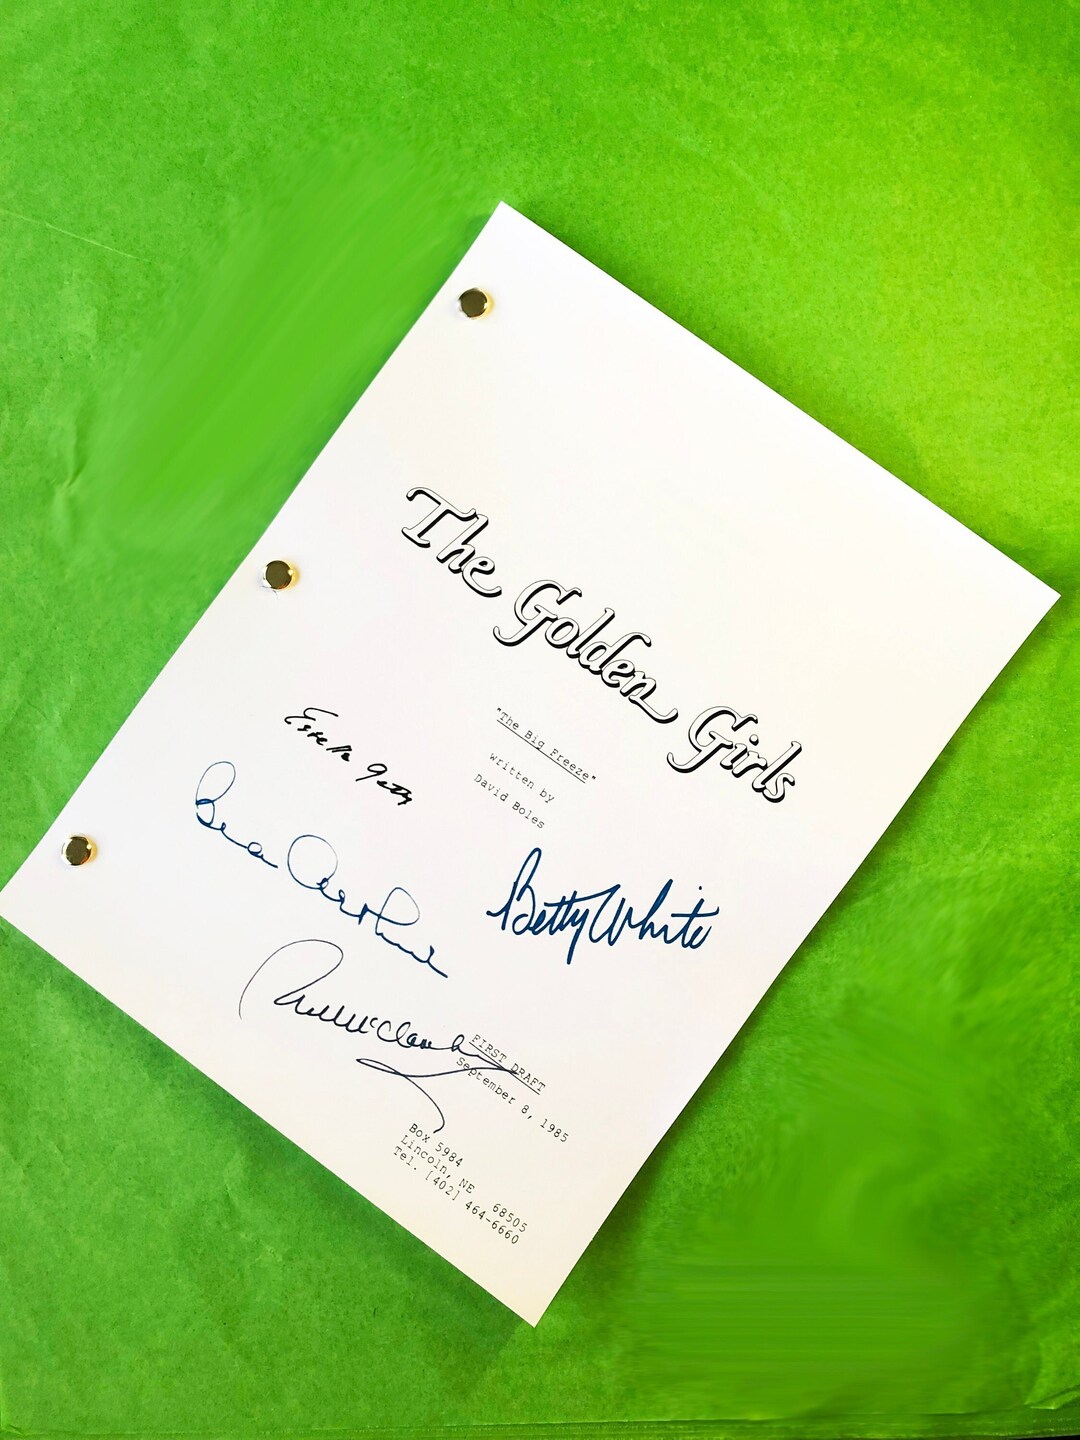 The Golden Girls
"The Big Freeze"
written by
David Boles
Estelle Getty
Bea Arthur
Betty White
Rue McClanahan
FIRST DRAFT
September 8, 1985
Box 5984
Lincoln, NE 68505
Tel. [402] 464-6660